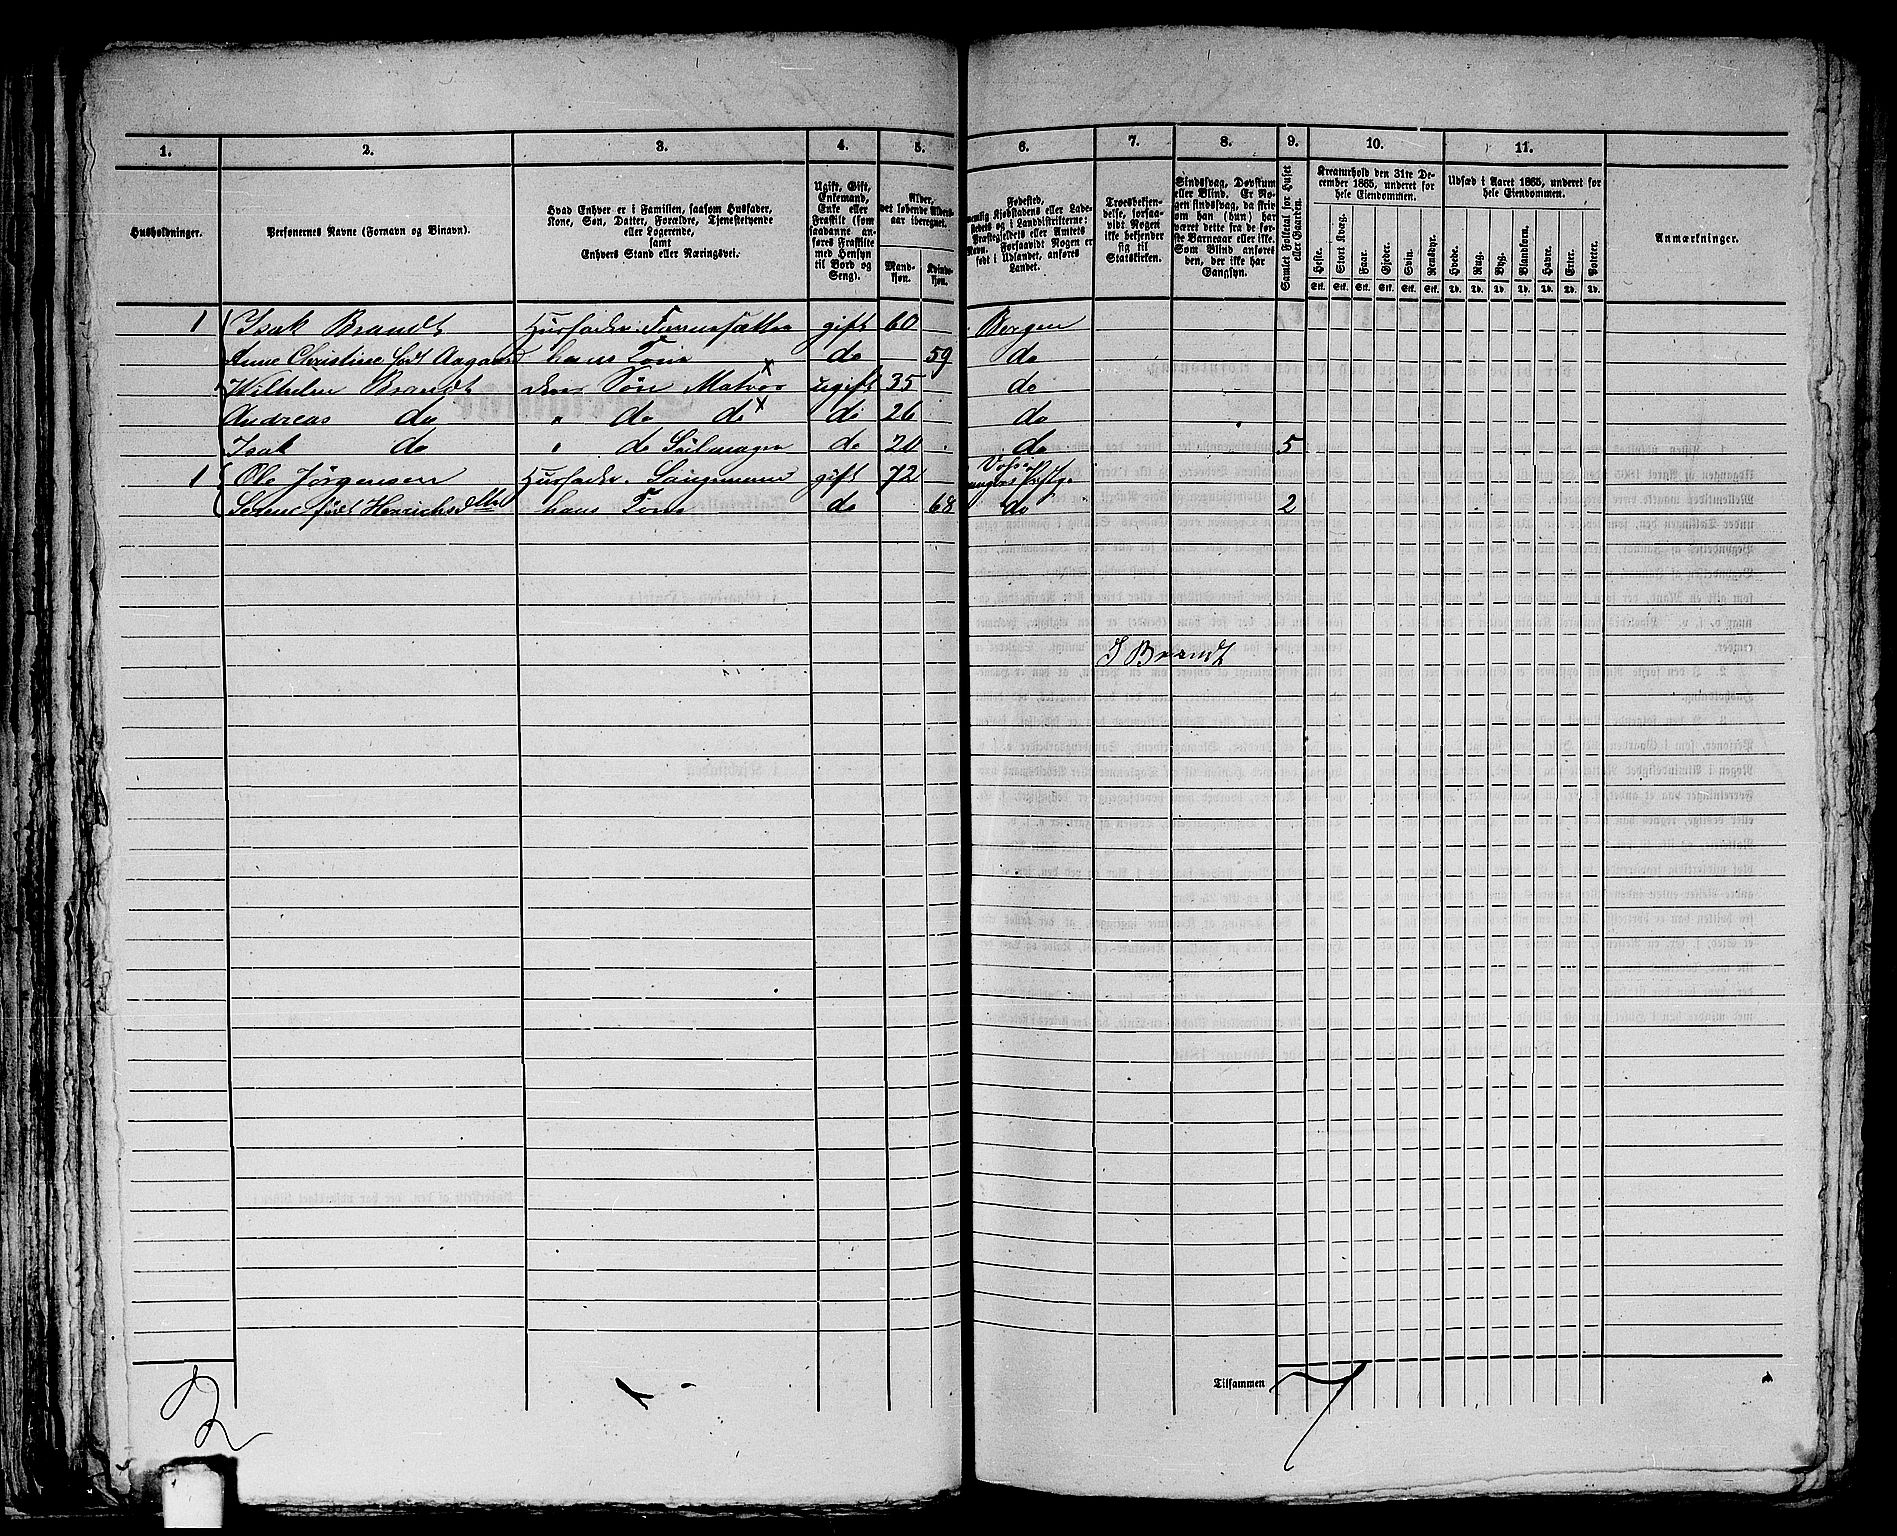 1. 2. 3. 4. 5. 6. 7. 8. 9. 10. 11.
Husholdninger.
Personernes Navne (Fornavn og Binavn).
Hvad Enhver er i Familien, saasom Husfader,
Kone, Søn, Datter, Forældre, Tjenestetyende
eller Logerende,
samt
Enhvers Stand eller Næringsvei.
Ugift, Gift,
Enkemand,
Enke eller
Fraskilt (som
saadanne an-
føres Fraskilte
med Hensyn
til Bord og
Seng).
Alder,
det løbende Alders-
aar iberegnet.
Mand-
kjøn.
Kvinde-
kjøn.
Fødested,
nemlig Kjøbstadens eller Lade-
stedets og i Landdistrikterne:
Præstegjeldets eller Amtets
Navn. Forsaavidt Nogen er
født i Udlandet, anføres
Landet.
Troesbekjen-
delse, forsaa-
vidt Nogen
ikke bekjender
sig til
Statskirken.
Sindssvag, Døvstum
eller Blind. Er No-
gen sindssvag, da skriv
om han (hun) har
været dette fra de før-
ste Barneaar eller ikke.
Som Blind anføres
den, der ikke har
Gangsyn.
Samlet Folketal for Huset
eller Gaarden.
Kreaturhold den 31te De-
cember 1865, underet for
hele Eiendommen.
Heste. Stort Kvæg. Faar. Gjeder. Svin. Rensdyr.
Stk. Stk. Stk. Stk. Stk. Stk.
Udsæd i Aaret 1865, underet for
hele Eiendommen.
Hvede. Rug. Byg. Blandkorn. Havre. Erter. Poteter.
Td. Td. Td. Td. Td. Td. Td.
Anmærkninger.
1 Isak Brandt Husfader gift 60 Bergen
Anne Christine født Aagaard hans Kone do 59 do
Wilhelm Brandt deres Søn Matros x ugift 35 do
Andreas do " do do x do 26 do
Isak do " do Seilmager do 20 do 5
1 Ole Jørgensen Husfader gift 72
født Henrichsdtter hans Kone do 68 do 2
I Brandt
Tilsammen 7
2